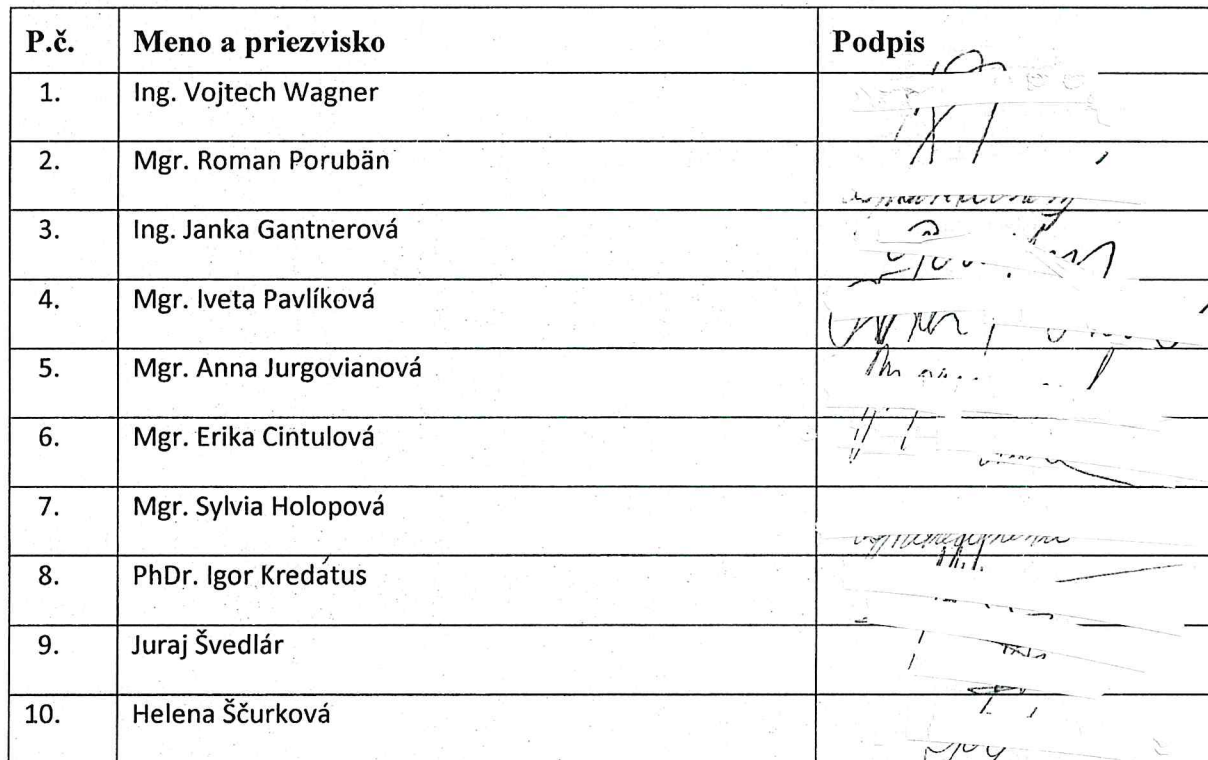 P.č. Meno a priezvisko Podpis
1. Ing. Vojtech Wagner
2. Mgr. Roman Porubän
3. Ing. Janka Gantnerová
4. Mgr. Iveta Pavlíková
5. Mgr. Anna Jurgovianová
6. Mgr. Erika Cintulová
7. Mgr. Sylvia Holopová
8. PhDr. Igor Kredátus
9. Juraj Švedlár
10. Helena Ščurková